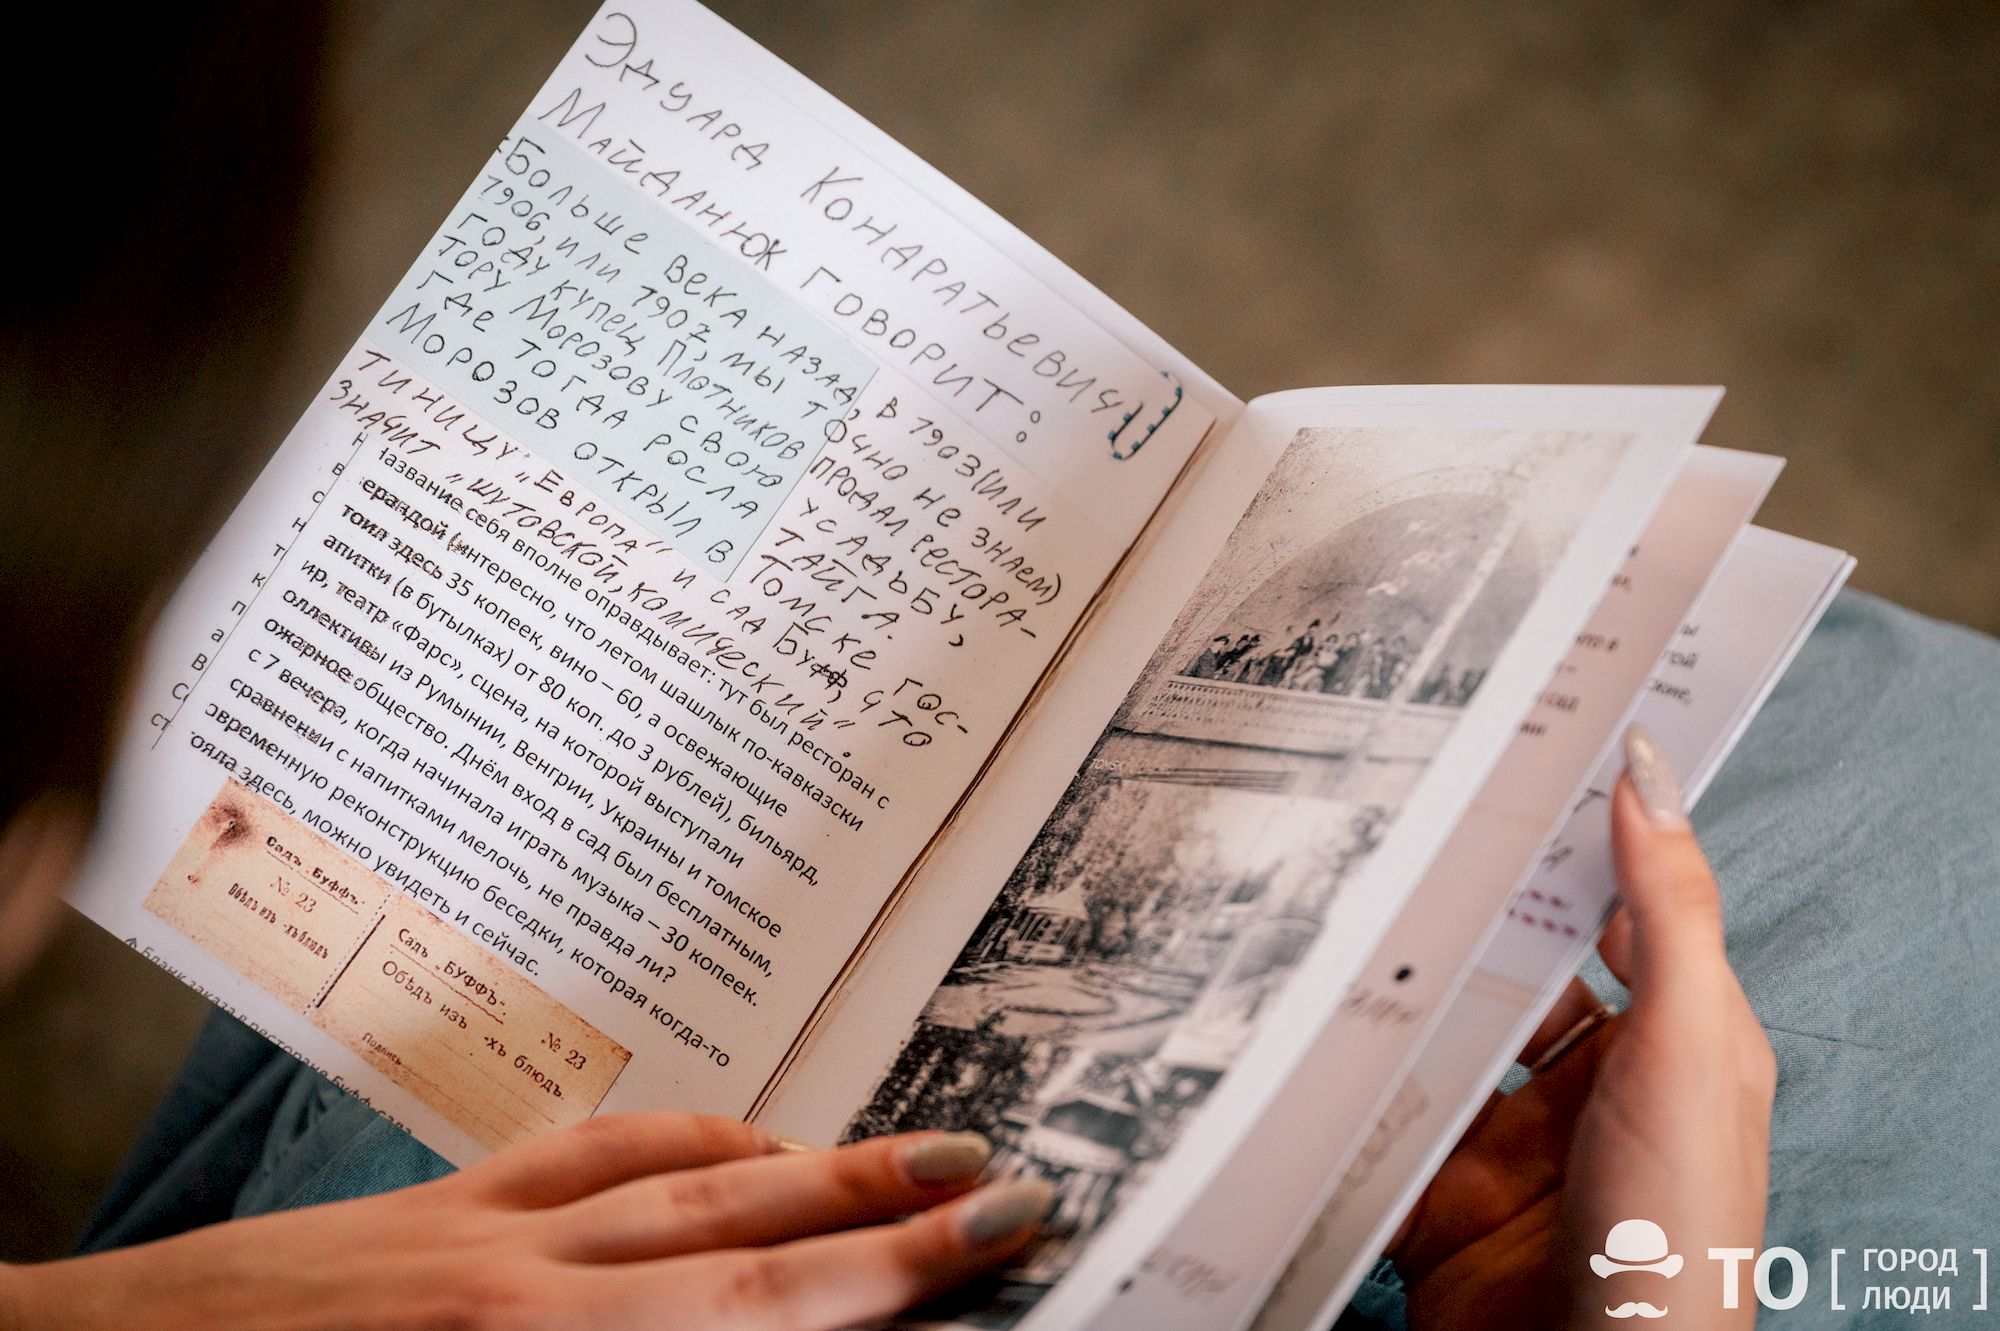 Эдуард Кондратьевич
Майданюк говорит:
«Больше века назад, в 1903 (или
1906, или 1907, мы точно не знаем)
году купец Плотников продал рестора-
тору Морозову свою усадьбу,
где тогда росла тайга.
Морозов открыл в Томске гос-
тиницу „Европа" и сад Буфф, что
значит „шутовской, комический".
Название себя вполне оправдывает: тут был ресторан с
верандой (интересно, что летом шашлык по-кавказски
стоил здесь 35 копеек, вино – 60, а освежающие
напитки (в бутылках) от 80 коп. до 3 рублей), бильярд,
тир, театр «Фарс», сцена, на которой выступали
коллективы из Румынии, Венгрии, Украины и томское
пожарное общество. Днём вход в сад был бесплатным,
а с 7 вечера, когда начинала играть музыка – 30 копеек.
В сравнении с напитками мелочь, не правда ли?
Современную реконструкцию беседки, которая когда-то
стояла здесь, можно увидеть и сейчас.
Садъ „Буффъ"
№ 23
Обѣдъ изъ -хъ блюдъ
Садъ „БУФФЪ"
№ 23
Обѣдъ изъ -хъ блюдъ.
Подпись
Бланк заказа в ресторане Буфф-сада
ТО [ГОРОД ЛЮДИ]